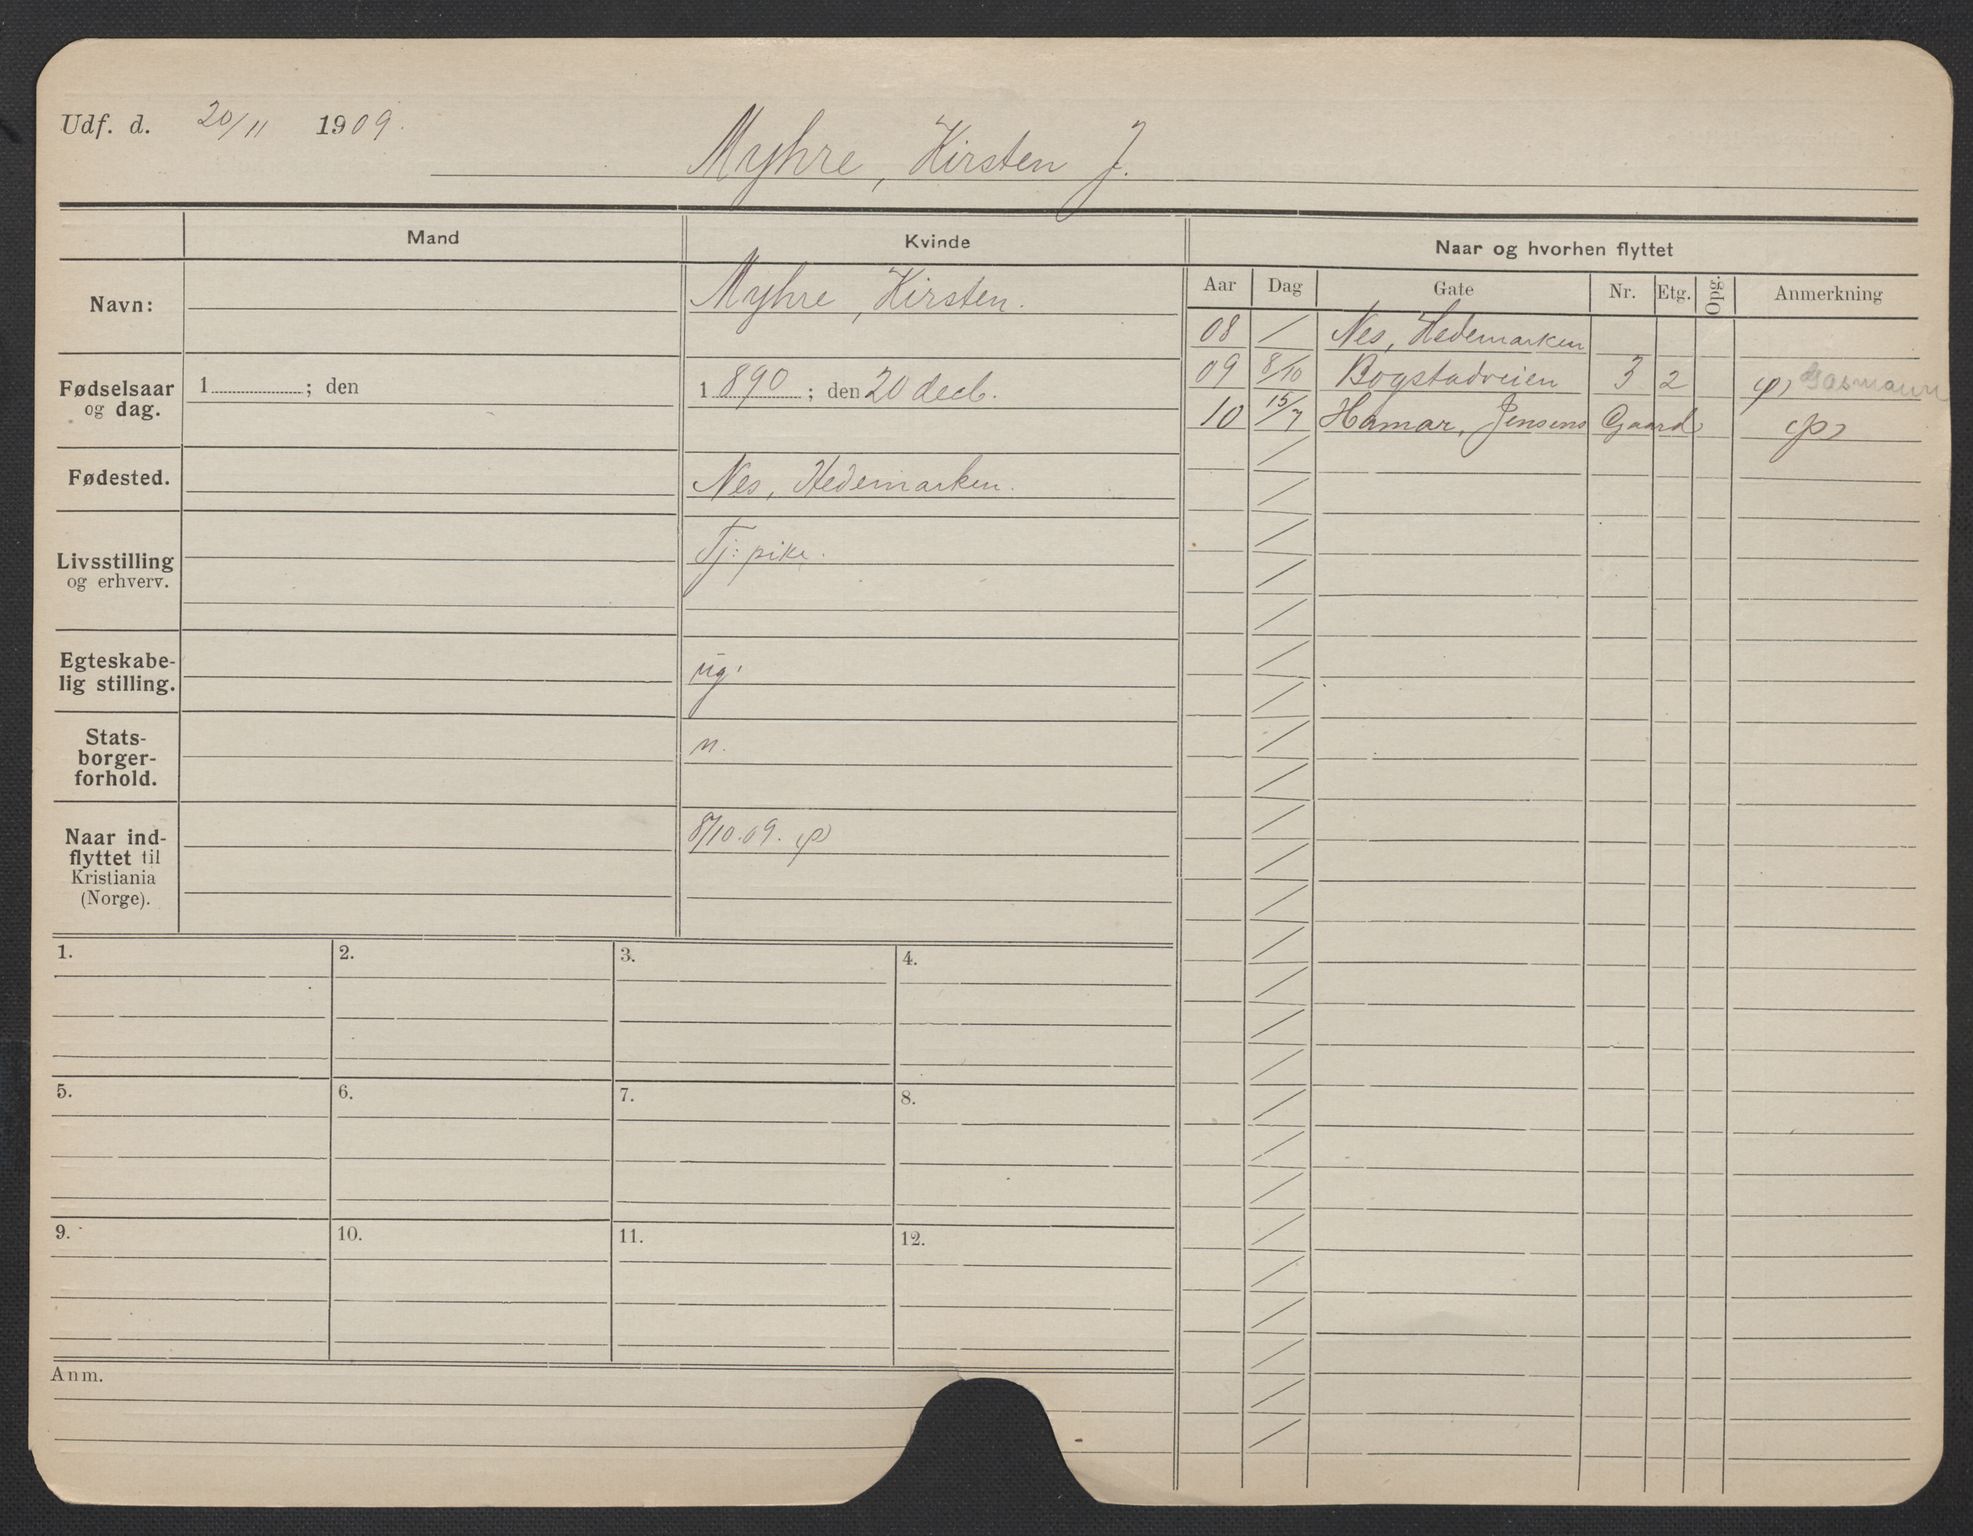 Udf. d. 20/11 1909.
Myhre, Kirsten J.
Mand
Kvinde
Naar og hvorhen flyttet
Navn:
Myhre, Kirsten.
Fødselsaar
og dag.
1 ; den
1 890 ; den 20 decb.
Fødested.
Nes, Hedemarken.
Livsstilling
og erhverv.
Tj: pike.
Egteskabe-
lig stilling.
ug.
Stats-
borger-
forhold.
n.
Naar ind-
flyttet til
Kristiania
(Norge).
8/10.09. (p)
Aar Dag Gate Nr. Etg. Opg. Anmerkning
08 / Nes, Hedemarken
09 8/10 Bogstadveien 3 2 (p)
10 15/7 Hamar, Jensens Gaard (p)
1. 2. 3. 4.
5. 6. 7. 8.
9. 10. 11. 12.
Anm.